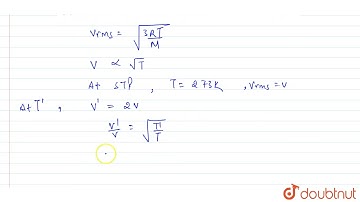 Vrms = √3RT/M
V ∝ √T
At STP, T = 273K, Vrms = v
At T', V' = 2v
V'/V = √T'/T
doubtnut